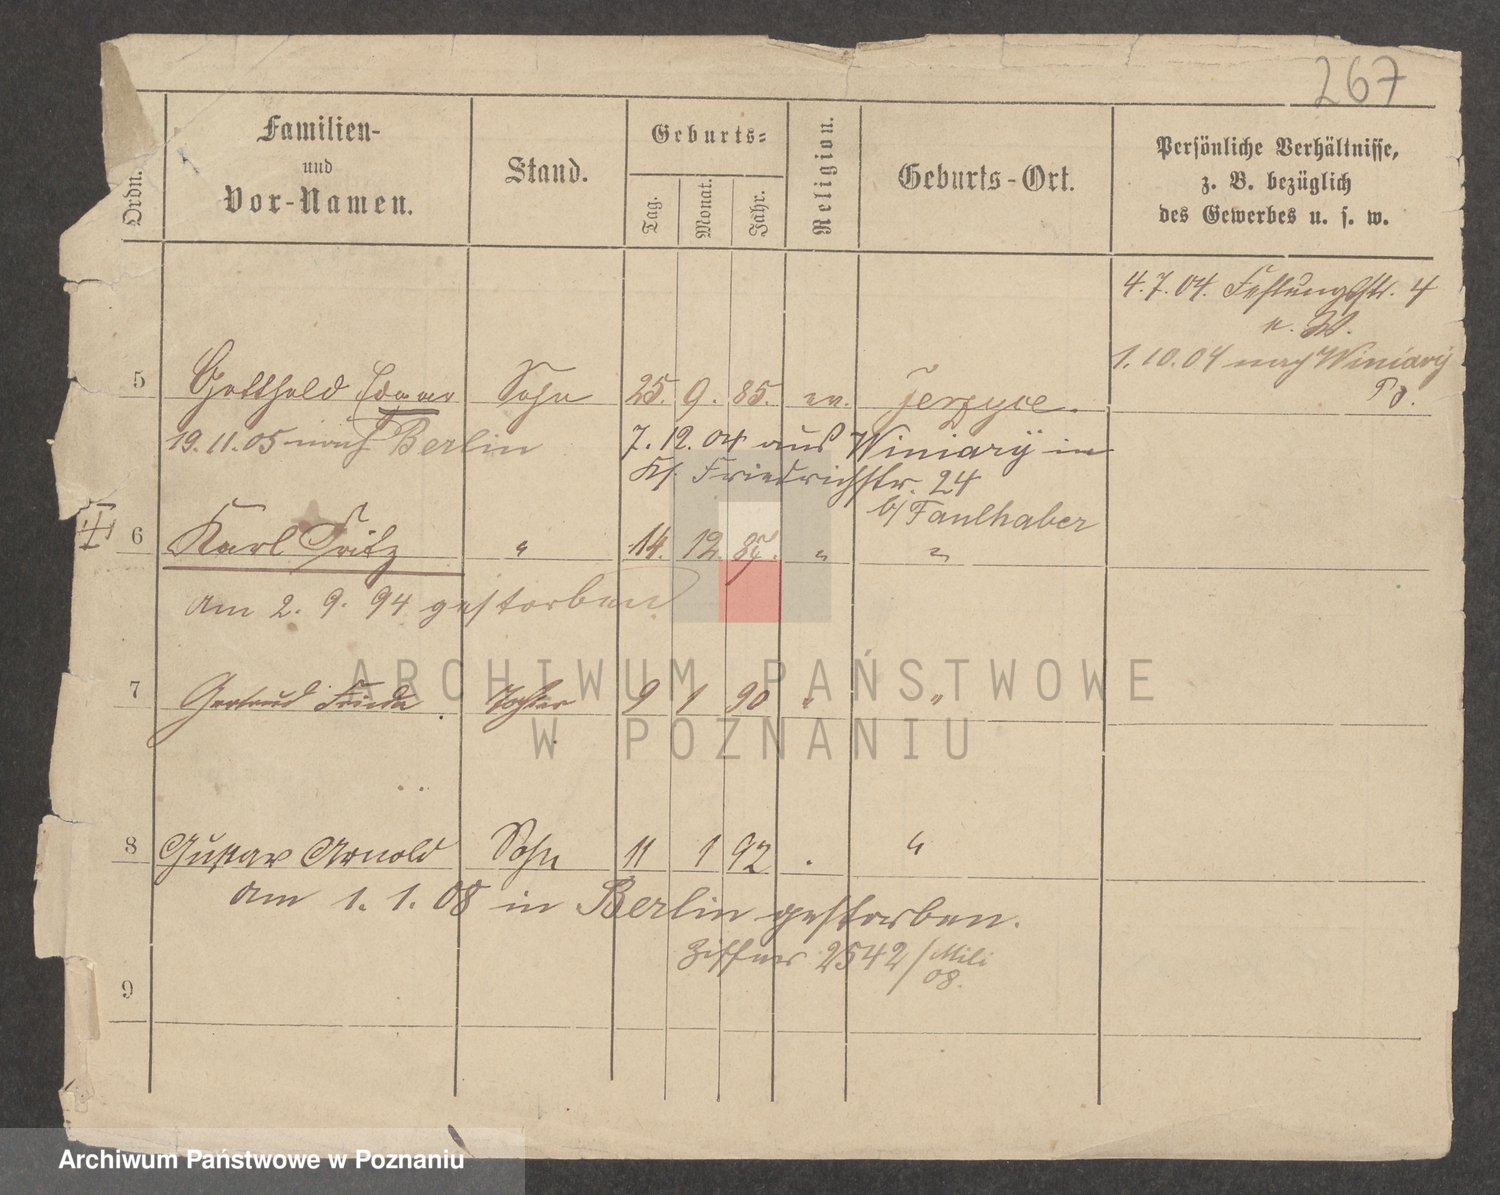 267
Ordn.
Familien-
und
Vor-Namen.
Stand.
Geburts-
Tag.
Monat.
Jahr.
Religion.
Geburts-Ort.
Persönliche Verhältnisse,
z. B. bezüglich
des Gewerbes u. s. w.
4.7.04. Festungsstr. 4
1.10.04 nach Winiary
5 Gotthold Sohn 25. 9. 85. ev. Jerzyce.
19.11.05 nach Berlin 7.12.04 aus Winiarÿ in
Kl. Friedrichstr. 24
b/ Faulhaber
6 Karl Fritz " 14. 12. " "
am 2. 9. 94 gestorben
7 Gertrud Frieda Tochter 9 1 90 " "
8 Gustav Arnold Sohn 11 1 92 . "
am 1. 1. 08 in Berlin gestorben.
Ziffer 2542/Mili
08.
9
ARCHIWUM PAŃSTWOWE
W POZNANIU
Archiwum Państwowe w Poznaniu